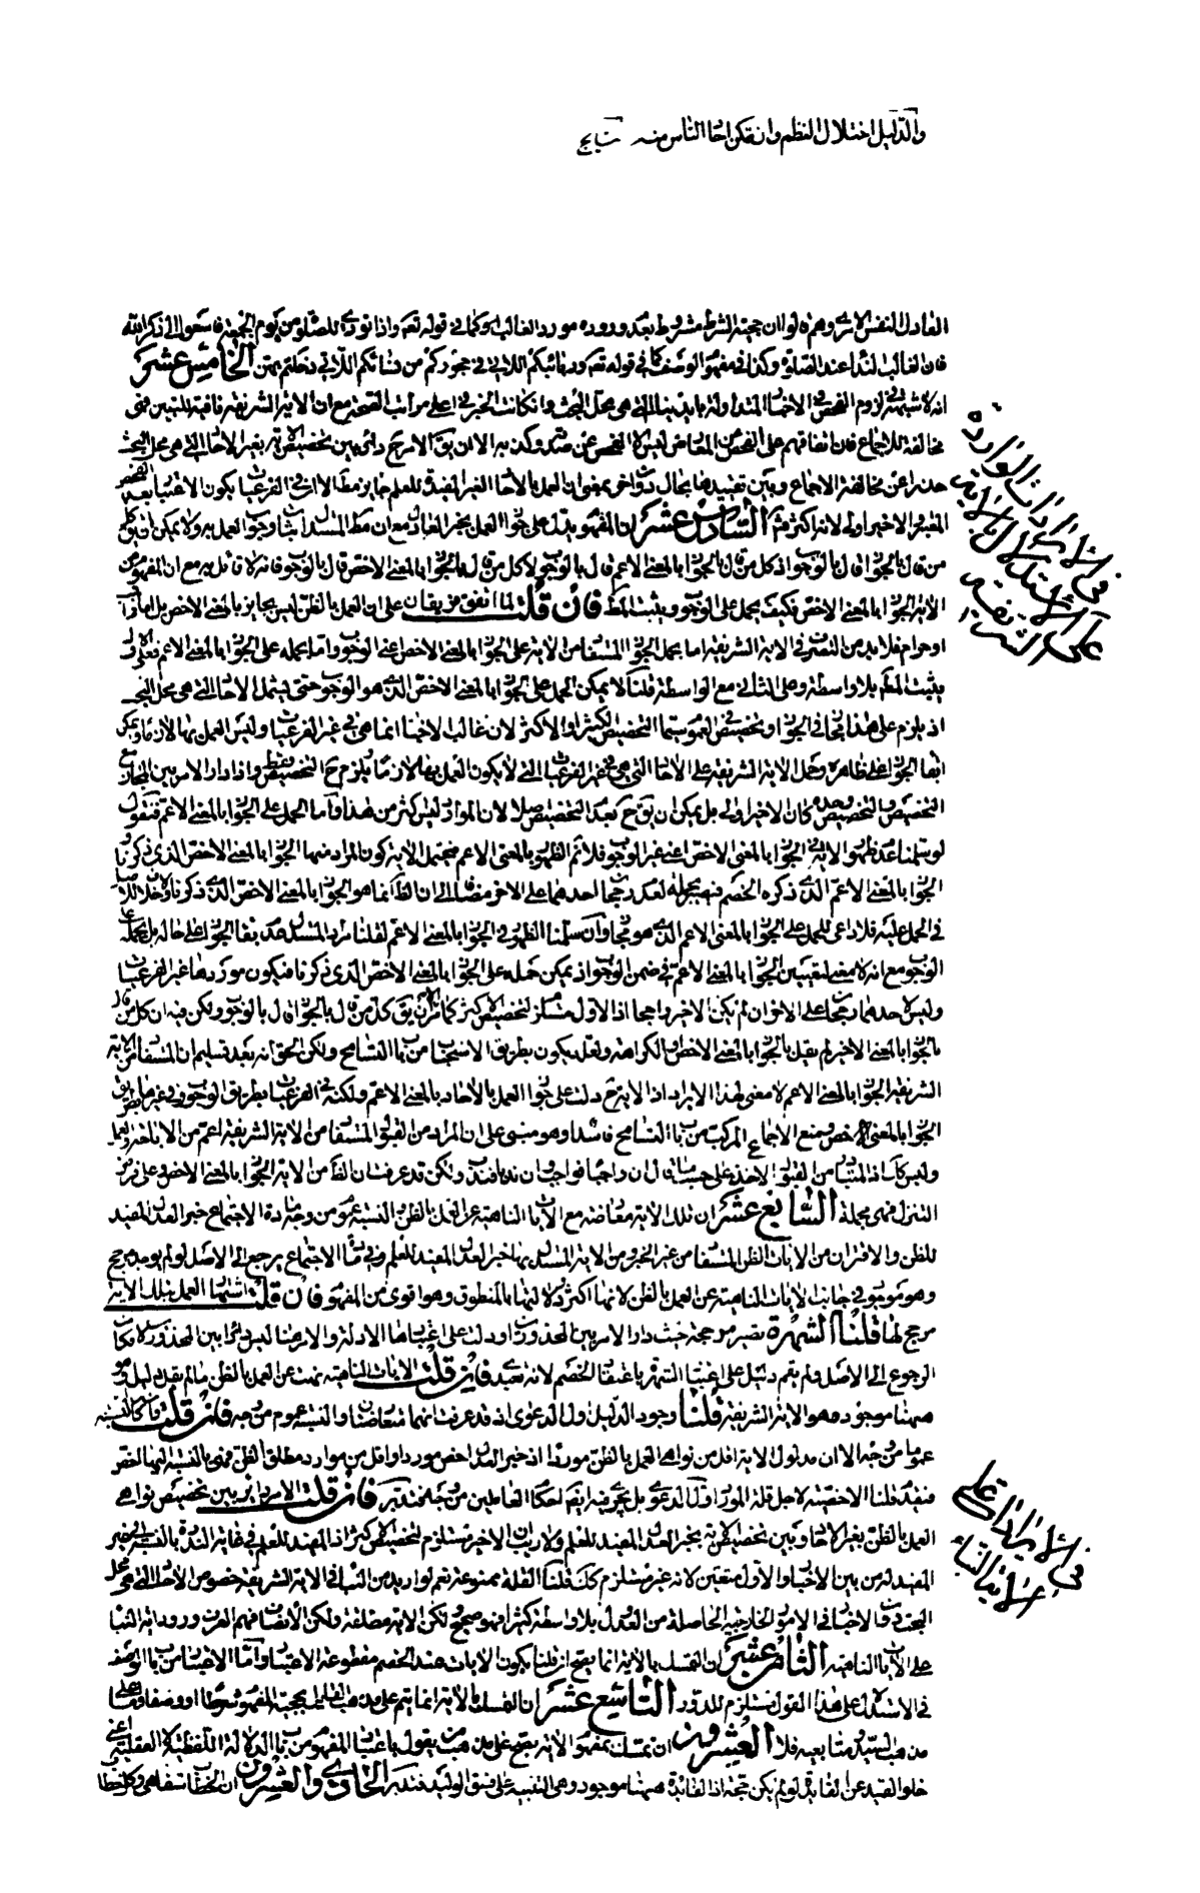 والدليل اختلال النظم وان تمكن احاد الناس منه
العادل النفس الامري وهم لو ان حجية الشرط مشروط بعد وروده مورد الغالب وكما في قوله تعه واذا نودي للصلوة من يوم الجمعة فاسعوا الى ذكر الله
فان الغالب النداء عند الصلوة وكذا في مفهوم الوصف كما في قوله تعه وربائبكم اللاتي في حجوركم من نسائكم اللاتي دخلتم بهن الخامس عشر
انه لا شبهة في لزوم الفحص في الاخبار المتداولة بايدينا التي هي محل البحث وان كانت الخبر في اعلى مراتب الصحة مع ان الاية الشريفة نافية للتبين فهي
مخالفة للاجماع فان اتفاقهم على الفحص عن المعارض ليس الا الفحص عن صدقه وكذبه الا ان يق الامر دائر بين تخصيص الاية بغير الاخبار التي هي محل البحث
حذرا عن مخالفة الاجماع وبين تقييدها بحال دون اخر بمعنى ان العمل بالاخبار الغير المفيدة للعلم جايز مطلقا الا ان في الفرعيات يكون الاعتبار بعد الفحص
المعتبر والاخير اولى لانه اكثر فتم السادس عشر ان المفهوم يدل على جواز العمل بخبر العادل مع ان مط المستدل اثبات وجوب العمل به ولا يمكن ان يق كل
من قال بالجواز قال بالوجوب اذ كل من قال بالجواز بالمعنى الاعم قال بالوجوب لا كل من قال بالجواز بالمعنى الاخص قال بالوجوب فانه لا قائل به مع ان المفهوم من
الاية الجواز بالمعنى الاخص فكيف يحمل على الوجوب ويثبت المط فان قلت لما اتفق فريقان على ان العمل بالظن ليس بجايز بالمعنى الاخص بل اما واجب
او حرام فلا بد من التصرف في الاية الشريفة اما بحمل الجواز المستفاد من الاية على الجواز بالمعنى الاخص اعني الوجوب واما بحمله على الجواز بالمعنى الاعم فعلى الاول
يثبت المط بلا واسطة وعلى الثاني مع الواسطة قلنا لا يمكن الحمل على الجواز بالمعنى الاخص الذي هو الوجوب حتى يشمل الاخبار التي هي محل البحث
اذ يلزم على هذا المجاز في الجواز وتخصيص في العموم سيما التخصيص الكثير او الاكثر لان غالب الاخبار انما هي في غير الفرعيات وليس العمل بها لازما ويمكن
ابقاء الجواز على ظاهره وحمل الاية الشريفة على الاخبار التي هي في غير الفرعيات التي لا يكون العمل بها لازما يلزم ح التخصيص فقط واذا دار الامر بين المجاز مع
التخصيص والتخصيص وحده كان الاخير اولى بل يمكن ان يق ح بعد التخصيص اصلا لان الموارد ليس اكثر من هذا واما الحمل على الجواز بالمعنى الاعم فنقول
لو سلمنا عدم ظهور الاية في الجواز بالمعنى الاخص اعني غير الوجوب فلا نم الظهور بالمعنى الاعم فيحتمل الاية كون المراد منها الجواز بالمعنى الاخص الذي ذكرنا
الجواز بالمعنى الاعم الذي ذكره الخصم فتصير مجملة لعدم رجحان احدهما على الاخر مضافا الى ان الظ انما هو الجواز بالمعنى الاخص الذي ذكرنا
في الحمل عليه فلا داعي للحمل على الجواز بالمعنى الاعم الذي هو مجاز وان سلمنا الظهور في الجواز بالمعنى الاعم لقلنا مراد المستدل عدم بقاء الجواز على حاله بل يحمله على
الوجوب مع انه لا معنى لتعيين الجواز بالمعنى الاعم في ضمن الوجوب اذ يمكن حمله على الجواز بالمعنى الاخص الذي ذكرنا فيكون موردها غير الفرعيات
وليس لاحدهما رجحان على الاخر ان لم يكن الاخير راجحا اذ الاول مستلزم لتخصيص اكثر كما مر الا ان يق كل من قال بالجواز قال بالوجوب ولكن فيه ان كل من قال
بالجواز بالمعنى الاخير لم يقل بالجواز بالمعنى الاخص بالكراهة ولعله يكون بطريق الاستحباب من باب التسامح ولكن الحق انه بعد تسليم ان المستفاد من الاية
الشريفة الجواز بالمعنى الاعم لا معنى لهذا الايراد اذ الاية ح دلت على جواز العمل بالاحاد بالمعنى الاعم ولكنه في الفرعيات بطريق الوجوب وفي غيرها بطريق
الجواز بالمعنى الاخص ومنع الاجماع المركب من باب التسامح فاسد وهو مبني على ان المراد من القبول المستفاد من الاية الشريفة اعم من الاباحة
وليس كك اذ المتبادر من القبول الاخذ على حسب ما قال ان واجبا فواجب وان ندبا فندب ولكن قد عرفت ان الظ من الاية الجواز بالمعنى الاخص وعلى فرض
التنزل فهي مجملة السابع عشر ان تلك الاية معارضة مع الايات الناهية عن العمل بالظن والنسبة عموم من وجه مادة الاجتماع خبر العدل المفيد
للظن والافتراق من الايات الظن المستفاد من غير الخبر ومن الاية المستدل بها خبر العدل المفيد للعلم وفي مادة الاجتماع يرجع الى الاصل لو لم يوجد مرجح
وهو موجود في جانب الايات الناهية عن العمل بالظن لانها اكثر ودلالتها بالمنطوق وهو اقوى من المفهوم فان قلت اشتهار العمل بتلك الاية
مرجح لها قلنا الشهرة تصير مرجحة حيث دار الامر بين المحذورات او دلت على اعتبارها الادلة والامر هنا ليس دائرا بين المحذورين لامكان
الرجوع الى الاصل ولم يقم دليل على اعتبار الشهرة باعتقاد الخصم لانه تعبد فان قلت الايات الناهية نهت عن العمل بالظن ما لم يقم دليل وهو
هيهنا موجود وهو الاية الشريفة قلنا وجود الدليل اول الدعوى اذ قد عرفت انهما متعارضتان والنسبة عموم من وجه فان قلت وان كان النسبة
عموما من وجه الا ان مدلول الاية اقل من نواهي العمل بالظن موردا اذ خبر العدل اخص موردا واقل من موارد مطلق الظن فهي بالنسبة اليها اخص
فيقدم قلنا الاخصية لاجل قلة المورد اول الدعوى بل يجري فيه ايضا احكام العامين من وجه فتدبر فان قلت الامر دائر بين تخصيص نواهي
العمل بالظن بغير الاخبار وبين تخصيص الاية بخبر العدل المفيد للعلم ولا ريب ان الاخير مستلزم لتخصيص الاكثر اذ المفيد للعلم في غاية الندرة بالنسبة الى غير
المفيد له من بين الاخبار والاول متعين لانه غير مستلزم كك قلنا القلة ممنوعة نعم لو اريد من النبا في الاية الشريفة خصوص الاخبار التي هي محل
البحث دون الاخبار في الامور الخارجية الحاصلة من العدول بلا واسطة كثيرا فهو صحيح لكن الاية مطلقة ولكن الانصاف فهم العرف ورود اية النبا
على الايات الناهية الثامن عشر ان التمسك بالاية انما يصح ان قلنا بكون الايات عند الخصم مقطوعة الاعتبار واما الاعتبار من باب الوصف
في الاستدلال على هذا القول مستلزم للدور التاسع عشر ان التمسك بالاية انما يتم على مذهب القائل بحجية المفهوم شرطا او وصفا وعلى
مذهب السيد ومتابعيه فلا العشرون ان تمسك بمفهوم الاية يصح على مذهب من يقول باعتبار المفهوم من باب الدلالة اللفظية لا العقلية اعني
خلو القيد عن الفائدة لو لم يكن حجة اذ الفائدة هيهنا موجود وهي التنبيه على فسق الوليد فتدبر الحادي والعشرون ان الخطاب شفاهي وكل خطاب
في الايرادات الواردة
على الاستدلال بالاية
الشريفة
في الايراد على
اية النباء